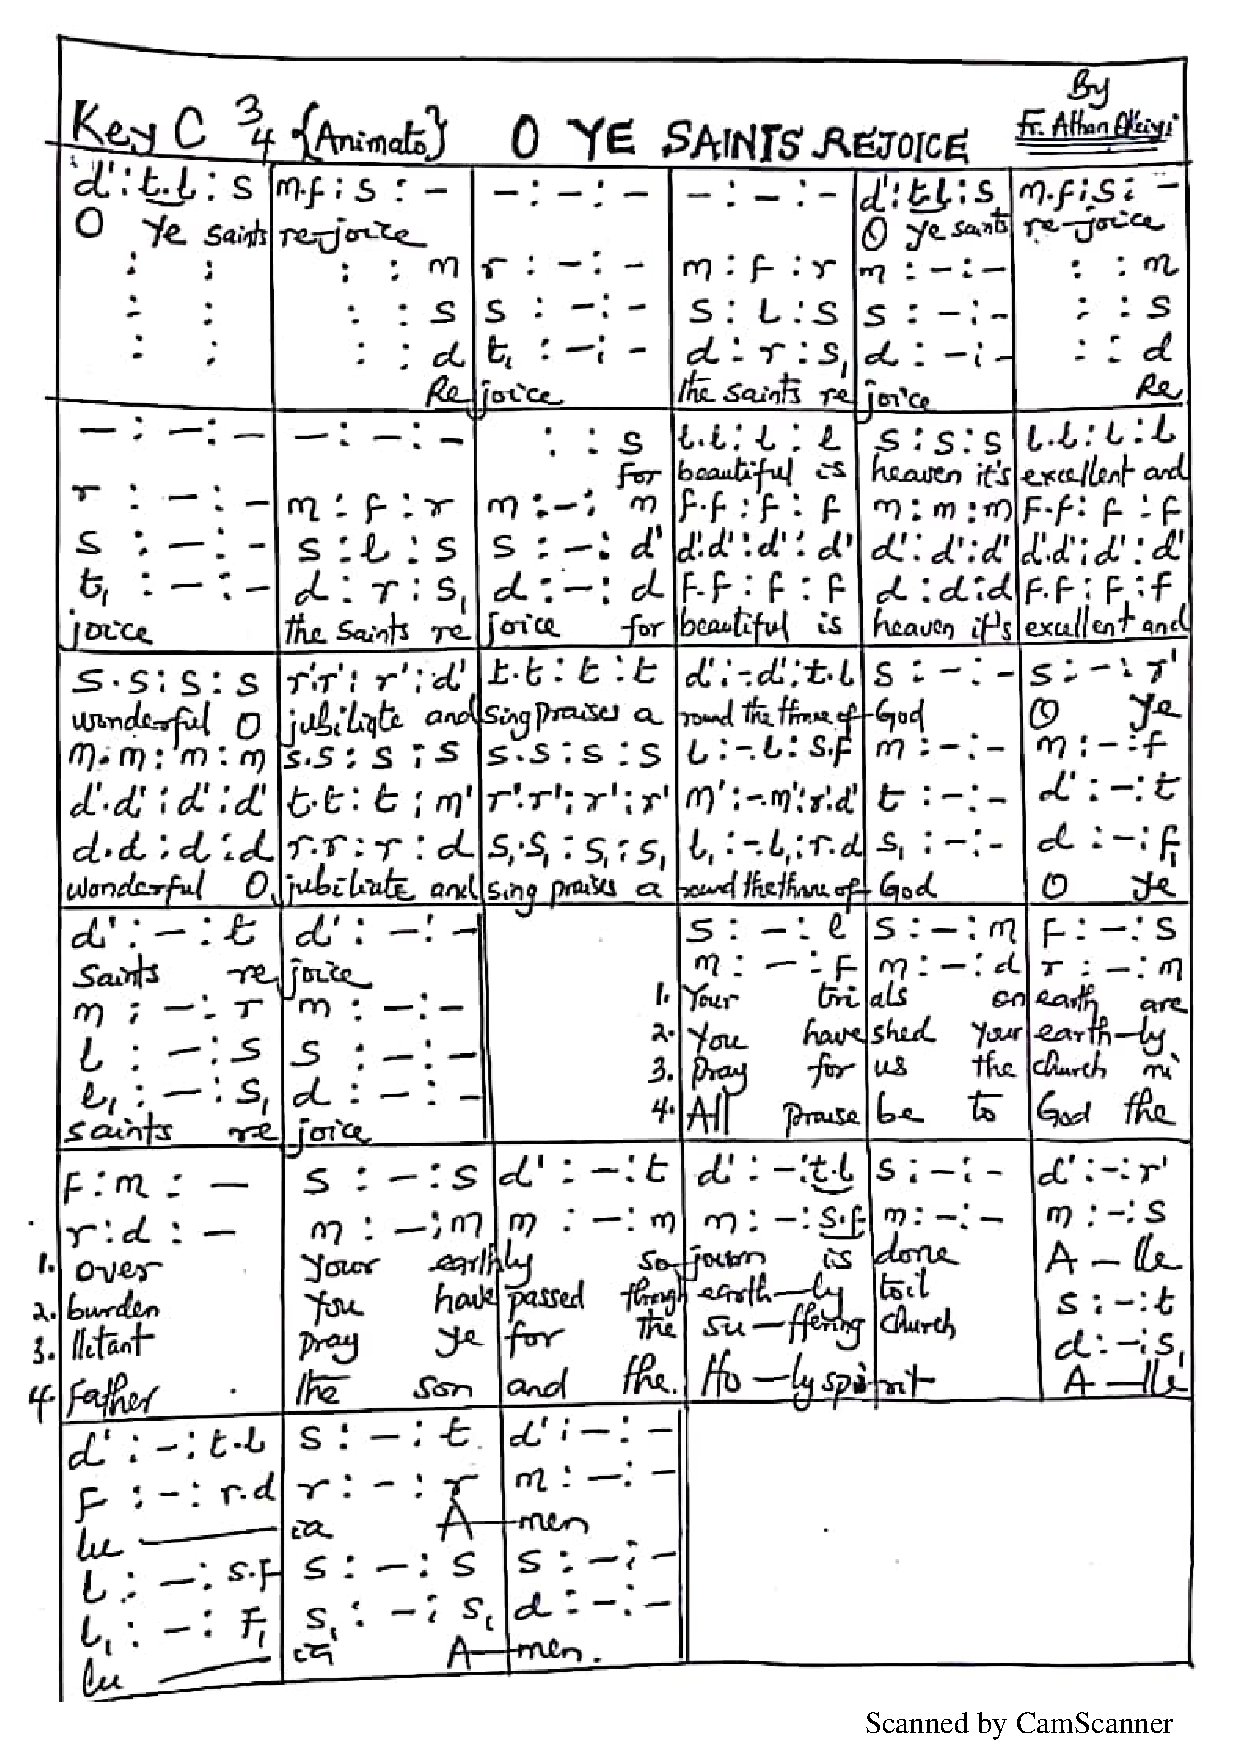 By
Key C 3/4 {Animato} O YE SAINTS REJOICE Fr. Athan
d' : t.l : s | m.f : s : - | - : - : - | - : - : - | d' : t.l : s | m.f : s : -
O Ye saints | re-joice | | | O ye saints | re-joice
: : | : : m | r : - : - | m : f : r | m : - : - | : : m
: : | : : s | s : - : - | s : l : s | s : - : - | : : s
: : | : : d | t₁ : - : - | d : r : s₁ | d : - : - | : : d
Re | joice | the saints re | joice | Re
- : - : - | - : - : - | : : s | l.l : l : l | s : s : s | l.l : l : l
for | beautiful is | heaven it's | excellent and
r : - : - | m : f : r | m : - : m | f.f : f : f | m : m : m | f.f : f : f
s : - : - | s : l : s | s : - : d' | d'.d' : d' : d' | d' : d' : d' | d'.d' : d' : d'
t₁ : - : - | d : r : s₁ | d : - : d | f.f : f : f | d : d : d | f.f : f : f
joice | the saints re | joice for | beautiful is | heaven it's | excellent and
s.s : s : s | r'.r' : r' : d' | t.t : t : t | d' : -.d' : t.l | s : - : - | s : - : r'
wonderful O | jubiliate and | sing praises a | round the throne of | God | O ye
m.m : m : m | s.s : s : s | s.s : s : s | l : -.l : s.f | m : - : - | m : - : f
d'.d' : d' : d' | t.t : t : m' | r'.r' : r' : r' | m' : -.m' : r'.d' | t : - : - | d' : - : t
d.d : d : d | r.r : r : d | s₁.s₁ : s₁ : s₁ | l₁ : -.l₁ : r.d | s₁ : - : - | d : - : f₁
wonderful O | jubiliate and | sing praises a | round the throne of | God | O ye
d' : - : t | d' : - : - | | s : - : l | s : - : m | f : - : s
saints re | joice | | m : - : f | m : - : d | r : - : m
m : - : r | m : - : - | 1. Your tri | als on | earth are
l : - : s | s : - : - | 2. You have | shed your | earth-ly
l₁ : - : s₁ | d : - : - | 3. pray for | us the | church mi
saints re | joice | 4. All praise | be to | God the
f : m : - | s : - : s | d' : - : t | d' : - : t.l | s : - : - | d' : - : r'
r : d : - | m : - : m | m : - : m | m : - : s.f | m : - : - | m : - : s
1. over | your earth | ly so | journ is | done | A - lle
2. burden | You have | passed through | earth-ly | toil | s : - : t
3. litant | pray ye | for the | su-ffering | church | d : - : s₁
4. father | the son | and the | Ho-ly spi | rit | A - lle
d' : - : t.l | s : - : t | d' : - : -
f : - : r.d | r : - : r | m : - : -
lu | ia A | men
l : - : s.f | s : - : s | s : - : -
l₁ : - : f₁ | s₁ : - : s₁ | d : - : -
lu | ia A | men.
Scanned by CamScanner